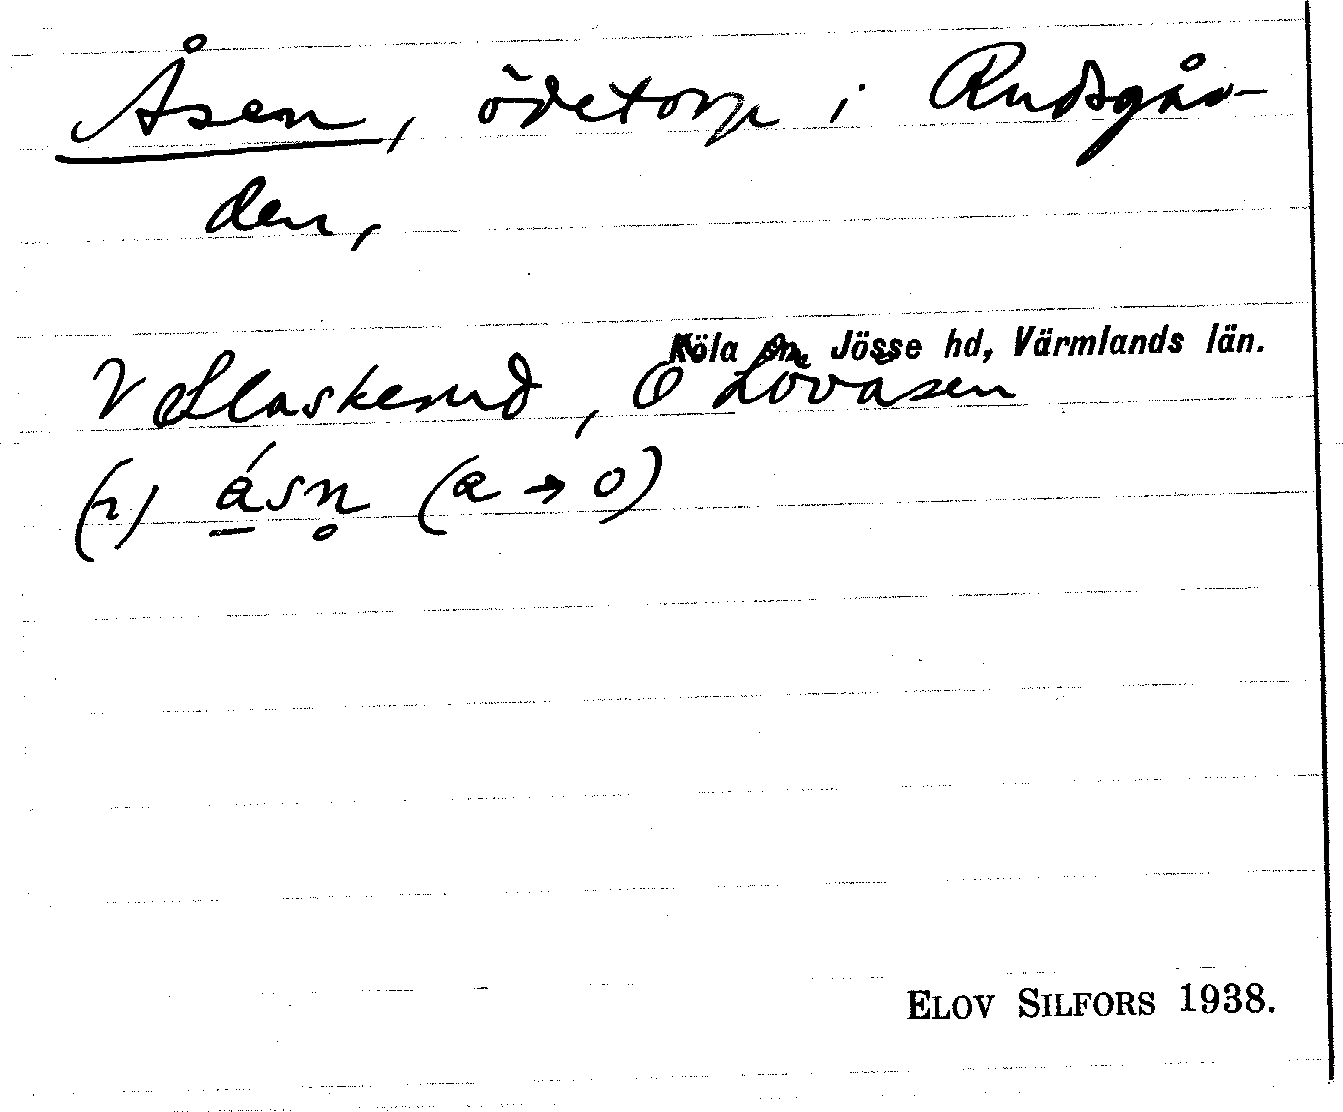 Åsen, ödetorp i Rudsgår-
den,
Köla sn, Jösse hd, Värmlands län.
V Slaskerud, O Lövåsen
(n) ásn̥ (a → o)
ELOV SILFORS 1938.